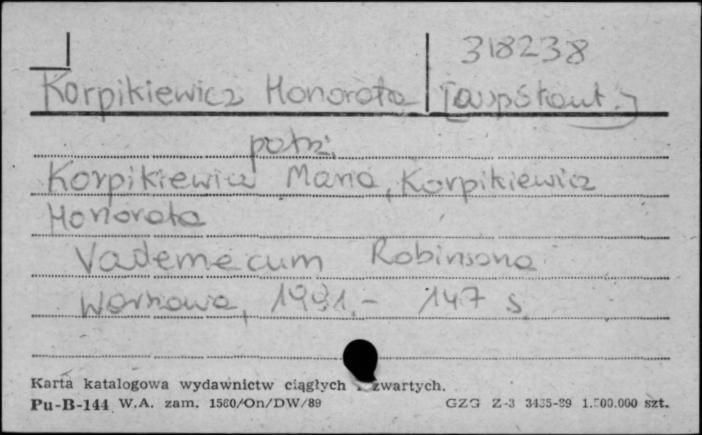 318238
Korpikiewicz Honorata [współaut.]
patrz
Korpikiewicz Maria, Korpikiewicz
Honorata
Vademecum Robinsona
Warszawa, 1991.- 147 s.
Karta katalogowa wydawnictw ciągłych i zwartych.
Pu-B-144 W.A. zam. 1560/On/DW/89 GZG Z-3 3435-89 1.500.000 szt.